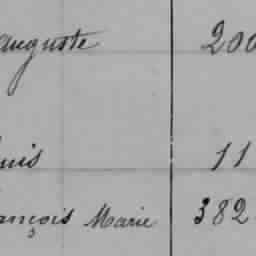 auguste 200
uis 11
ançois Marie 382